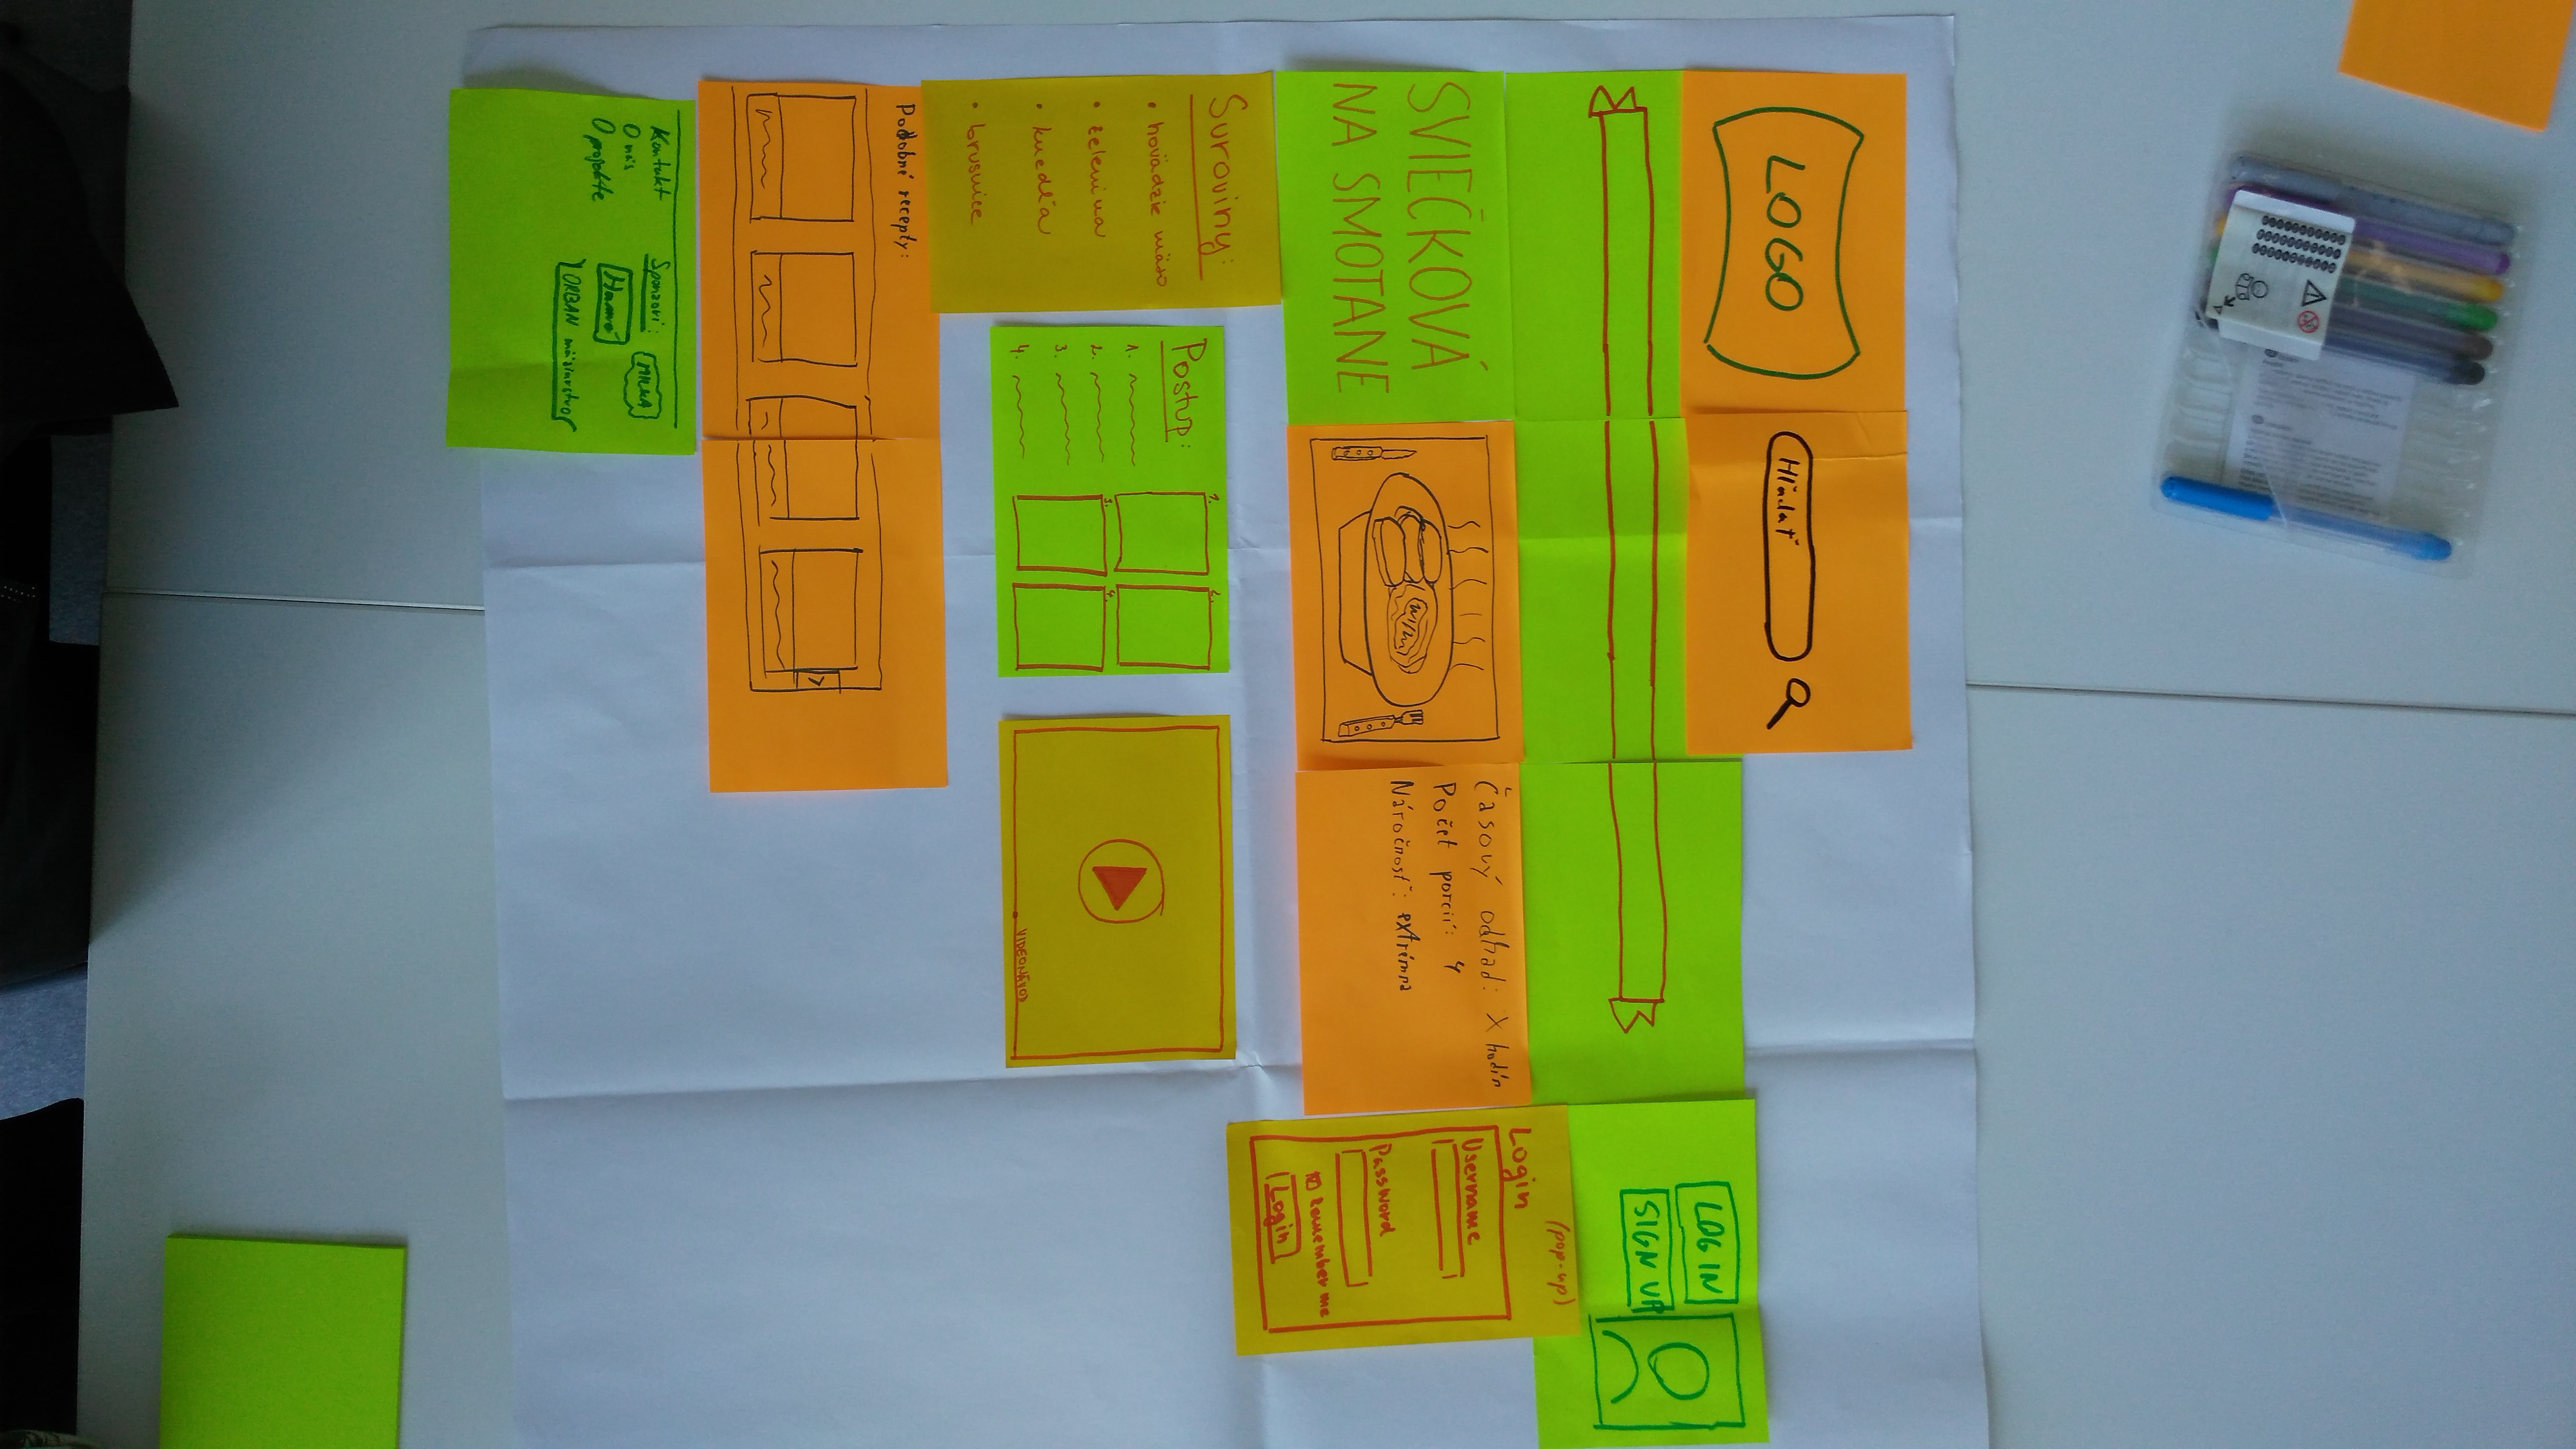 LOGO
Hľadať
LOG IN
SIGN UP
SVIEČKOVÁ
NA SMOTANE
Časový odhad: X hodín
Počet porcií: 4
Náročnosť: extrémna
(pop-up)
Login
Username
Password
remember me
Login
Suroviny:
• hovädzie mäso
• zelenina
• knedľa
• brusnice
Postup:
1.
2.
3.
4.
1.
2.
3.
4.
VIDEONÁVOD
Podobné recepty:
Kontakt
O nás
O projekte
Sponzori:
MILKA
Hamé
ORBAN mäsiarstvo